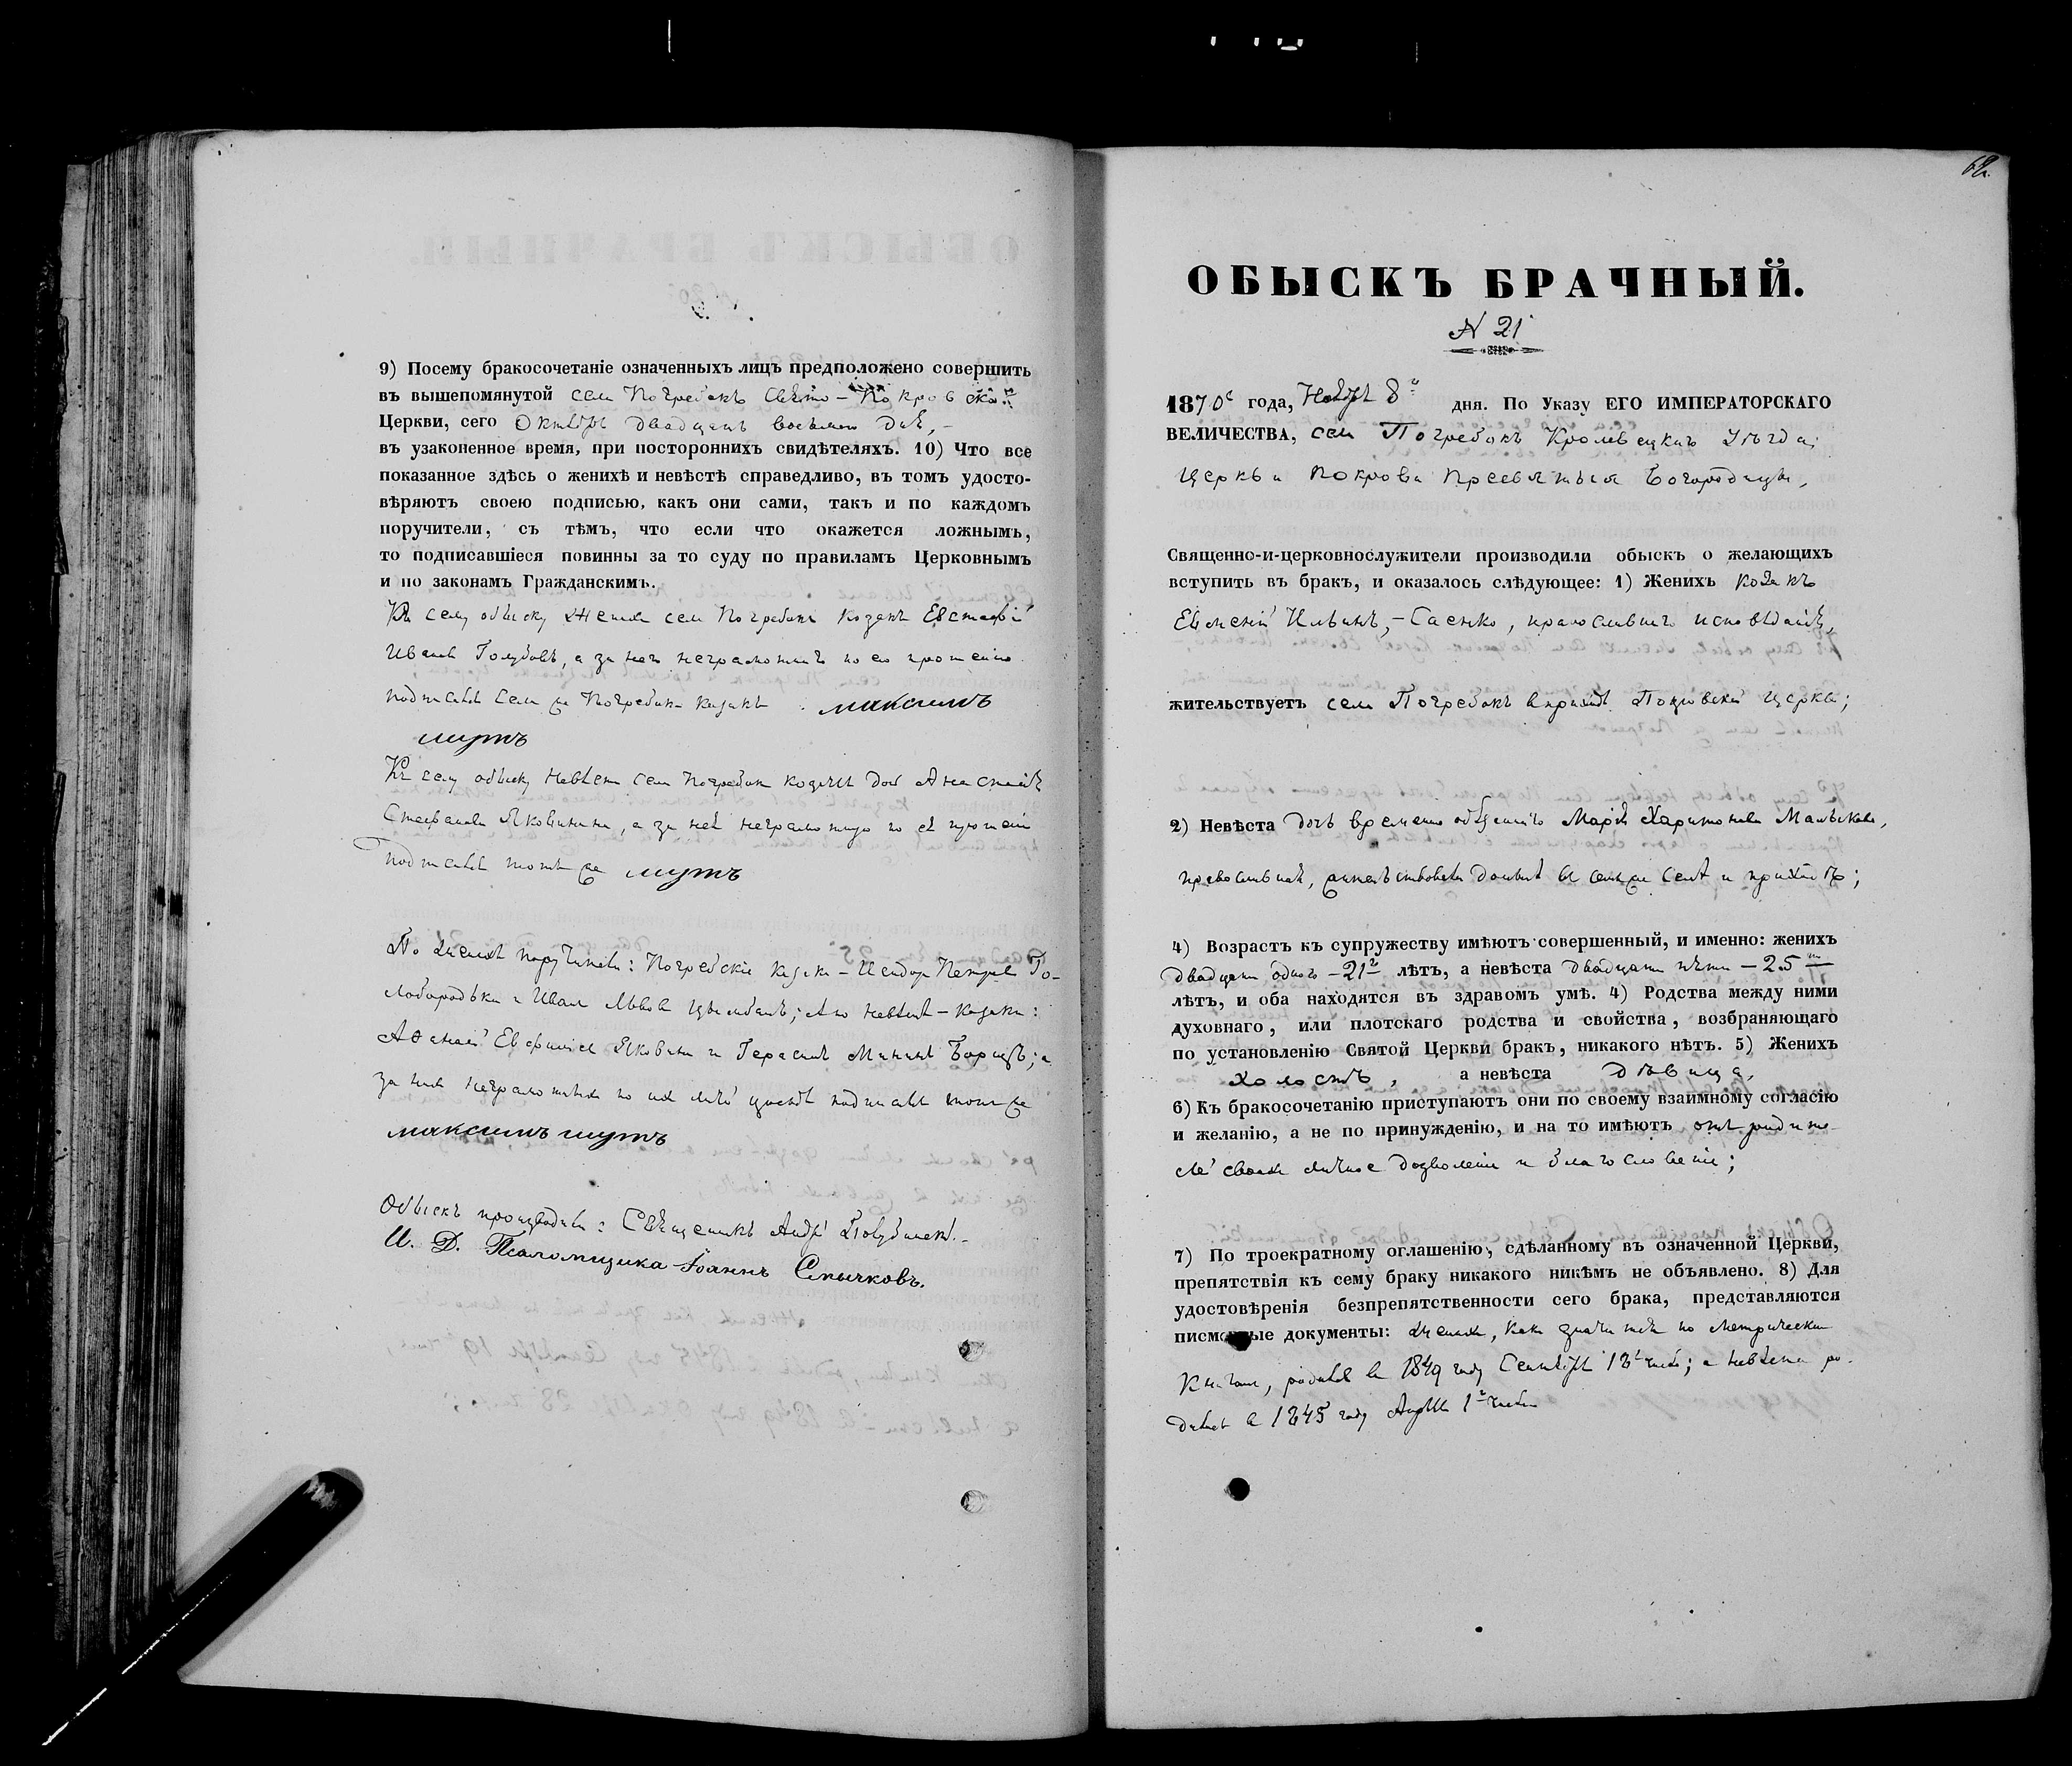 9) Посему бракосочетаніе означенныхъ лицъ предположено совершить
въ вышепомянутой села Погребокъ Свято-Покровской
Церкви, сего Октября двадцать восьмаго дня,-
въ узаконенное время, при постороннихъ свидѣтеляхъ. 10) Что все
показанное здѣсь о женихѣ и невѣстѣ справедливо, въ томъ удосто-
вѣряютъ своею подписью, какъ они сами, такъ и по каждомъ
поручители, съ тѣмъ, что если что окажется ложнымъ,
то подписавшіеся повинны за то суду по правиламъ Церковнымъ
и по законамъ Гражданскимъ.
Къ сему обыску женихъ села Погребокъ козакъ Евстафій
Ивановъ Голубовъ, а за него неграмотнаго по его прошенію
подписался села Погребокъ козакъ максимъ
шутъ
Къ сему обыску невѣста села Погребокъ дочь Анастасія
Стефанова Яковинина, а за неё неграмотную по её прошенію
подписался тотъ же шутъ
По женихѣ поручители: Погребскіе козаки - Исидоръ Петровъ Го-
лобородька и Иванъ Львовъ; а по невѣстѣ - козаки:
Аѳанасій Евфиміевъ Яковинъ и Герасимъ Мининъ Борщъ; а
за нихъ неграмотныхъ по ихъ подписался тотъ же
максимъ шутъ
Обыскъ производили: Священникъ Андрей
И. Д. Псаломщика Іоаннъ Смычковъ.
62.
ОБЫСКЪ БРАЧНЫЙ.
N 21
1870 года, Ноября 8 дня. По Указу ЕГО ИМПЕРАТОРСКАГО
ВЕЛИЧЕСТВА, села Погребокъ Кролевецкаго Уѣзда,
Церкви Покрова Пресвятыя Богородицы,
Священно-и-церковнослужители производили обыскъ о желающихъ
вступить въ бракъ, и оказалось слѣдующее: 1) Женихъ козакъ
Евменій Ильинъ,-Саенко, православнаго исповѣданія,
жительствуетъ села Погребокъ въ приходѣ Покровской церкви;
2) Невѣста дочь временно обязаннаго Марія Харитонова Малькова,
православная, жительствовала донынѣ въ семъ же селѣ и приходѣ;
4) Возрастъ къ супружеству имѣютъ совершенный, и именно: женихъ
двадцать одного - 21 лѣтъ, а невѣста двадцати пяти - 25
лѣтъ, и оба находятся въ здравомъ умѣ. 4) Родства между ними
духовнаго, или плотскаго родства и свойства, возбраняющаго
по установленію Святой Церкви бракъ, никакого нѣтъ. 5) Женихъ
холостъ, а невѣста дѣвица,
6) Къ бракосочетанію приступаютъ они по своему взаимному согласію
и желанію, а не по принужденію, и на то имѣютъ отъ родите-
лей своихъ личное дозволеніе и благословеніе;
7) По троекратному оглашенію, сдѣланному въ означенной Церкви,
препятствія къ сему браку никакого никѣмъ не объявлено. 8) Для
удостовѣренія безпрепятственности сего брака, представляются
писменные документы: женихъ, какъ значится по метрическимъ
книгамъ, родился въ 1849 году Сентября 13 числа; а невѣста ро-
дилась въ 1845 году Апрѣля 1 числа